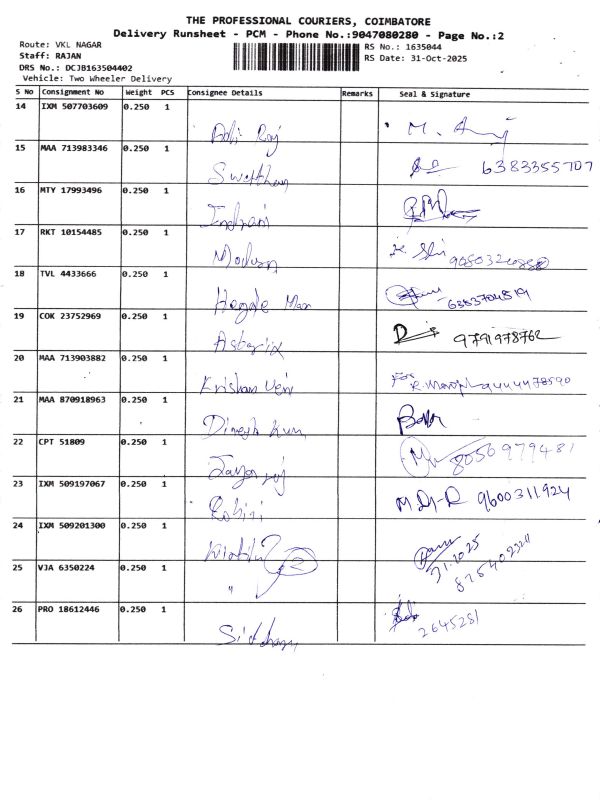 THE PROFESSIONAL COURIERS, COIMBATORE
Delivery Runsheet - PCM - Phone No.:9047080280 - Page No.:2
Route: VKL NAGAR
Staff: RAJAN
DRS No.: DCJB163504402
Vehicle: Two Wheeler Delivery
RS No.: 1635044
RS Date: 31-Oct-2025
S No Consignment No Weight PCS Consignee Details Remarks Seal & Signature
14 IXM 507703609 0.250 1 Adhi Raj
15 MAA 713983346 0.250 1 6383355707
16 MTY 17993496 0.250 1 Indrani
17 RKT 10154485 0.250 1
18 TVL 4433666 0.250 1 Hegde
19 COK 23752969 0.250 1 Asterix 9791978762
20 MAA 713903882 0.250 1 Krishna Veni For 9444478590
21 MAA 870918963 0.250 1 Dinesh Kum
22 CPT 51809 0.250 1 8056979481
23 IXM 509197067 0.250 1 Rohini 9600311924
24 IXM 509201300 0.250 1 2 31.10.25
25 VJA 6350224 0.250 1 "
26 PRO 18612446 0.250 1 2645281